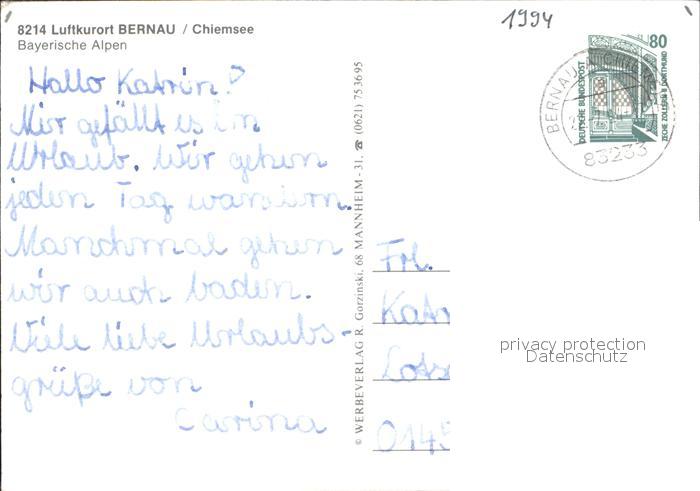 1994
8214 Luftkurort BERNAU / Chiemsee
Bayerische Alpen
Hallo Katrin!
Mir gefällt es im
Urlaub. Wir gehen
jeden Tag wandern.
Manchmal gehen
wir auch baden.
Viele liebe Urlaubs-
grüße von
Carina
© WERBEVERLAG R. Gorzinski, 68 MANNHEIM - 31, ☎ (0621) 753695
80
DEUTSCHE BUNDESPOST
ZECHE ZOLLERN II DORTMUND
BERNAU
83233
Frl.
Katr
Lots
0145
privacy protection
Datenschutz